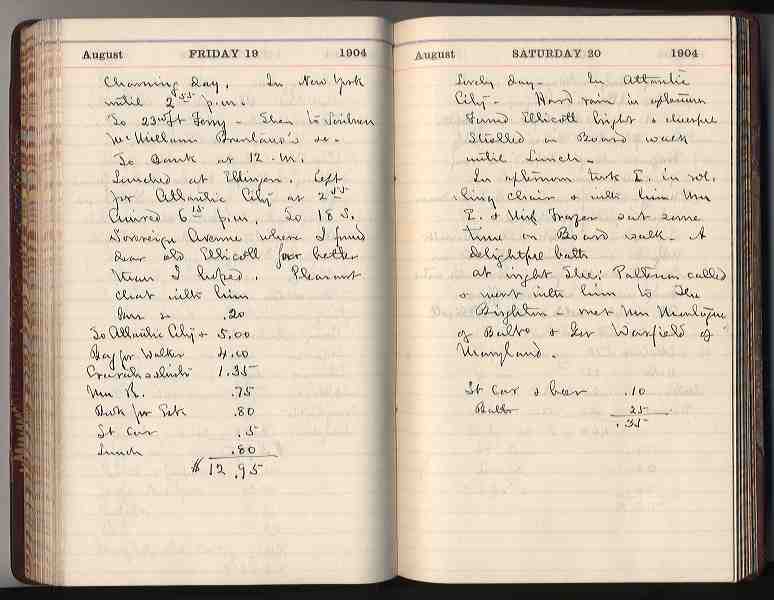 August FRIDAY 19 1904
Charming day. In New York
until 2 55 p.m.
To 23rd St Ferry - Then to Scribner
McMillan Brentano's &c.
To Bank at 12 m.
Lunched at . Left
for Atlantic City at 2 55
Arrived 6 15 p.m. To 18 S.
Sovereign Avenue where I found
dear old Ellicott far better
than I hoped. Pleasant
chat with him
.20
To Atlantic City + 5.00
Bag for Walker 4.00
Cravats & shirts 1.35
Mrs R. .75
Book for .80
St Car .5
Lunch .80
$ 12.95
August SATURDAY 20 1904
Lovely day - In Atlantic
City - Hard rain in afternoon
Found Ellicott bright & cheerful
Strolled on Board walk
until Lunch -
In afternoon took E. in rol-
ling chair & with him Mrs
E. & Miss Frazer sat some
time on Board walk. A
delightful bath
at night Patterson called
& went with him to The
Brighton & met Mrs Montague
of Balto & Gov Warfield of
Maryland.
St Car & beer .10
Bath 25
.35